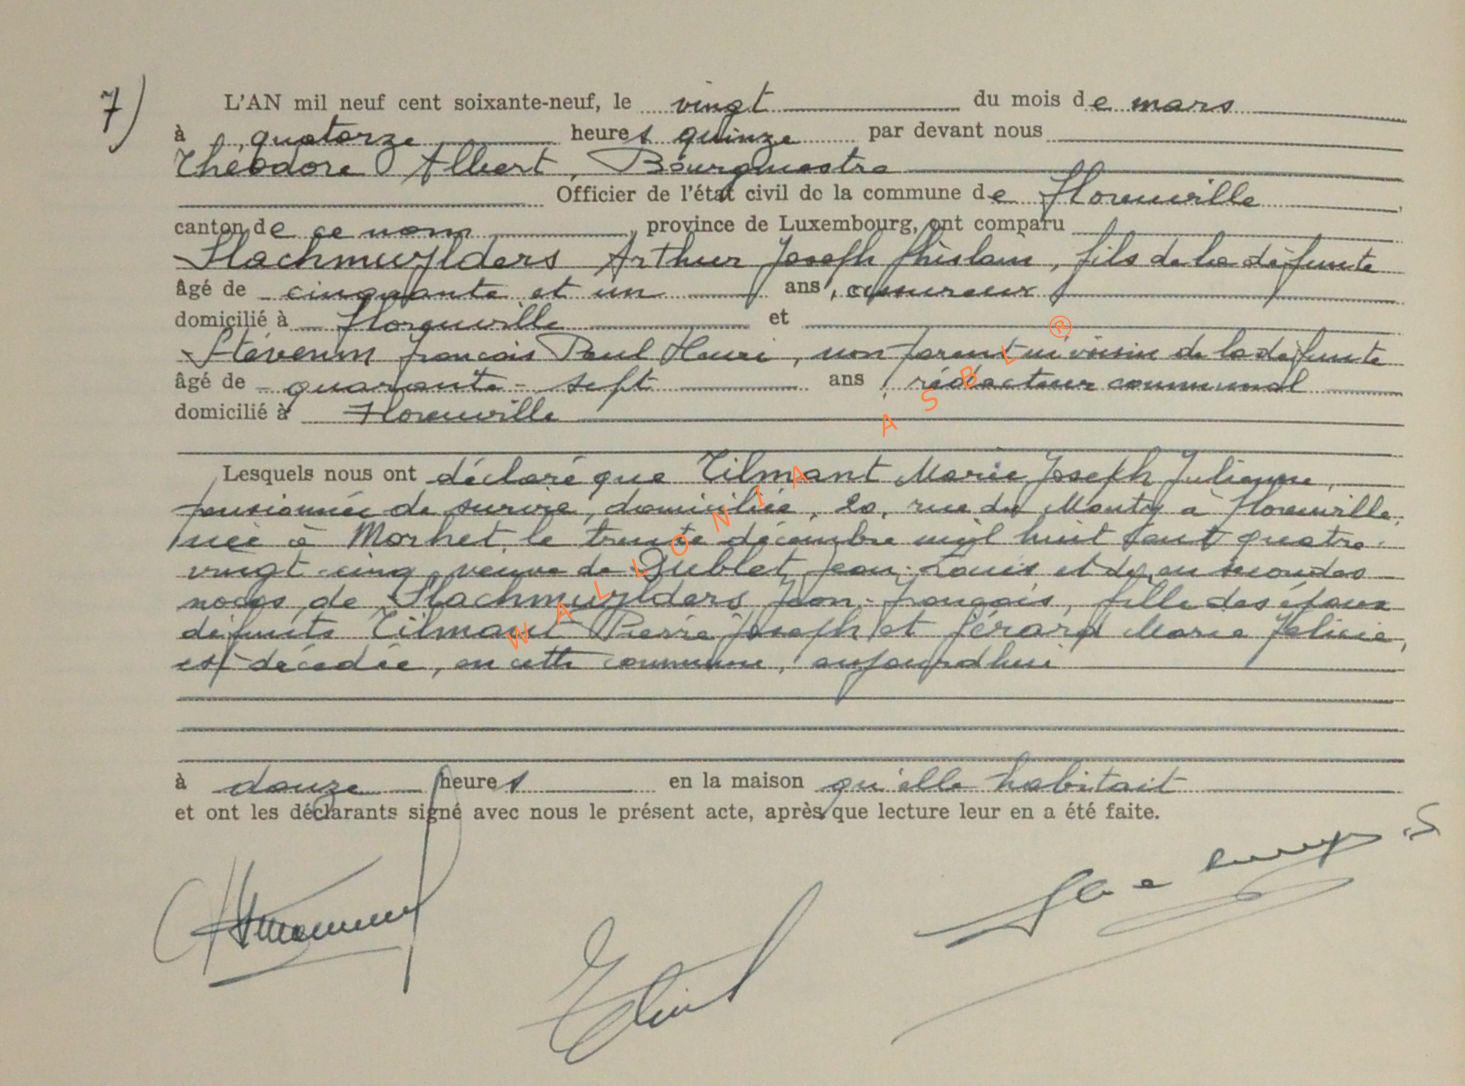 7)
L'AN mil neuf cent soixante-neuf, le vingt du mois de mars
à quatorze heures quinze par devant nous
Théodore Albert, Bourgmestre
Officier de l'état civil de la commune de Florenville
canton de ce nom, province de Luxembourg, ont comparu
Slachmuylders Arthur Joseph Ghislain, fils de la défunte
âgé de cinquante et un ans, assureur
domicilié à Florenville et
Stévenin François Paul Henri, non parent ni voisin de la défunte
âgé de quarante-sept ans, rédacteur communal
domicilié à Florenville
Lesquels nous ont déclaré que Tilmant Marie Joseph Julienne,
pensionnée de survie, domiciliée, 20, rue du Monty à Florenville,
née à Morhet, le trente décembre mil huit cent quatre-
vingt-cinq, veuve de Dublet Jean-Louis et de, en secondes
noces, de Slachmuylders Jean-François, fille des époux
défunts Tilmant Pierre Joseph et Gérard Marie Félicie,
est décédée, en cette commune, aujourd'hui
à douze heures en la maison qu'elle habitait
et ont les déclarants signé avec nous le présent acte, après que lecture leur en a été faite.
WALLONIA ASBL ®